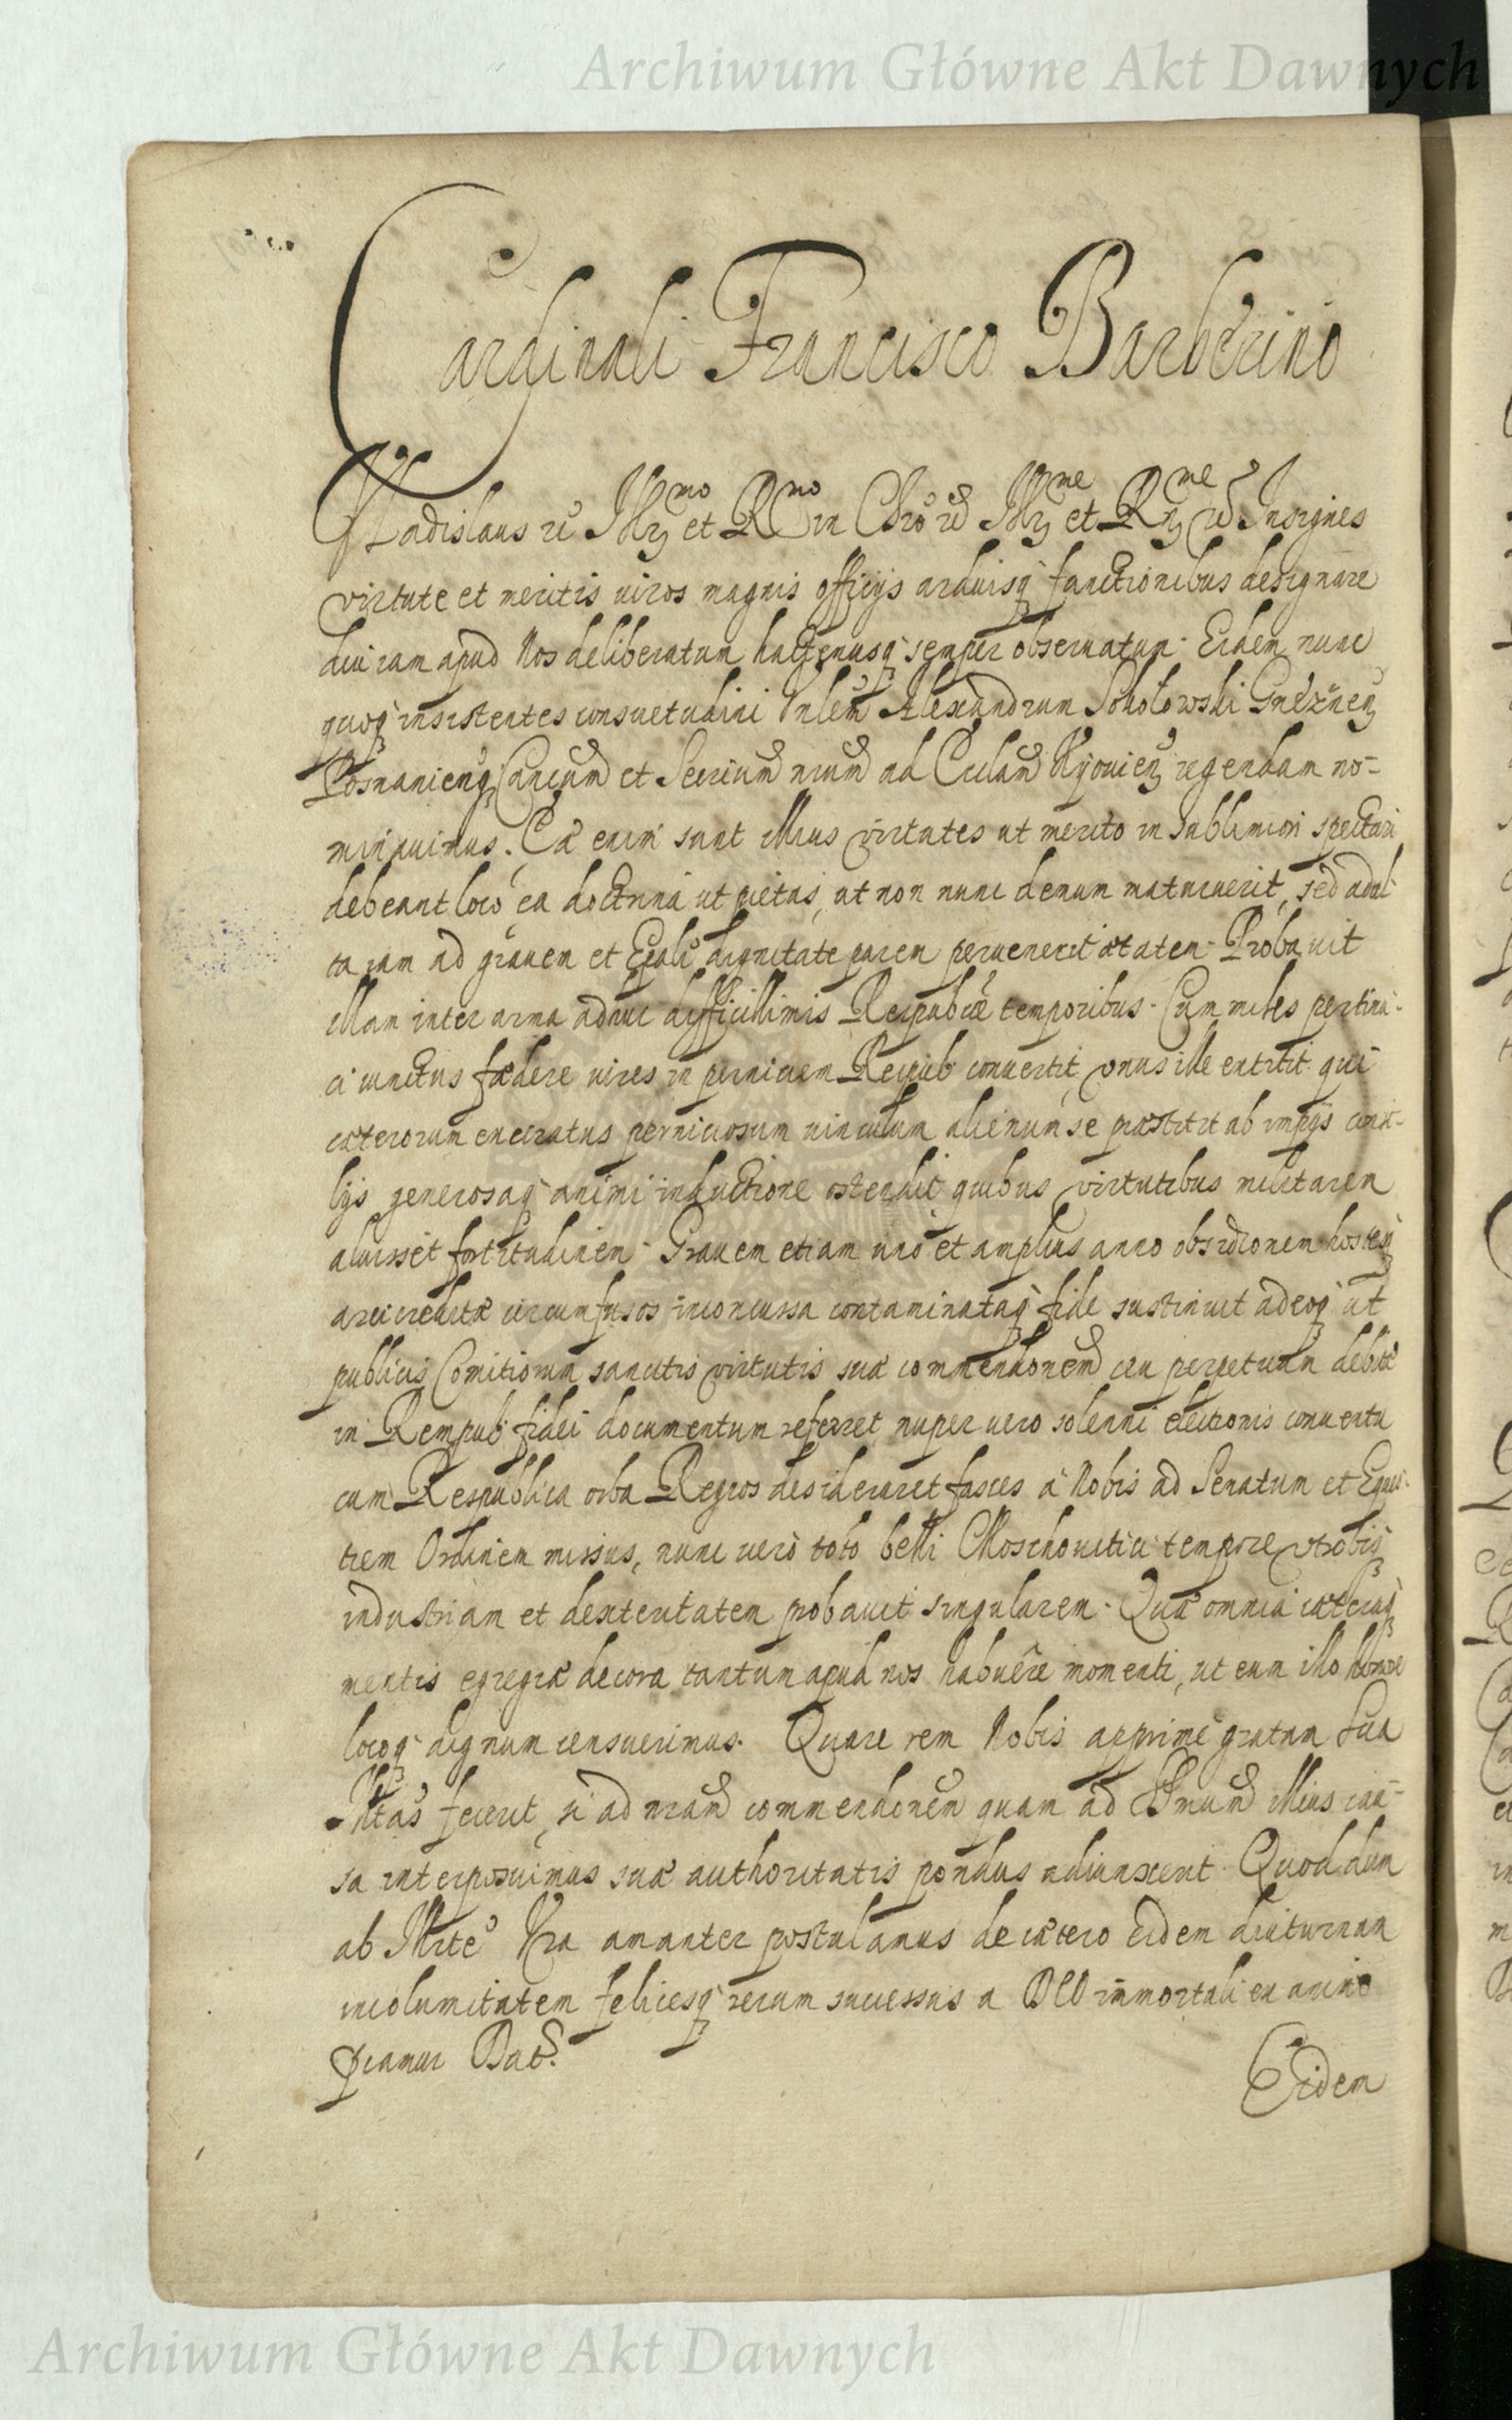 Archiwum Główne Akt Dawnych
Cardinali Francisco Barberino
Vladislaus etc Illmo et Rmo in Chro etc Illme et Rme etc Insignes
virtute et meritis viros magnis officijs arduisq functionibus designare
diu iam apud Nos deliberatum hactenusq semper observatum. Eidem nunc
quoq insistentes consuetudini Alexandrum Sokołowski Gneznen
Posnanien et Secrium nrum ad Kijouien regendam no-
minauimus. Ea enim sunt illius virtutes ut merito in sublimiori spectari
debeant loco ea doctrina ut pietas, ut non nunc demum maturuerit, sed adul
ta iam ad grauem et dignitate parem peruenerit ætatem. Probauit
illam inter arma adhuc difficillimis Reipublicæ temporibus. Cum miles pertina-
ci iunctus fœdere vires in perniciem Reipub conuertit, vnus ille extitit qui
cæterorum execratus perniciosum vinculum alienum se præstitit ab impijs consi-
lijs generosaq animi inductione ostendit quibus virtutibus militarem
aluisset fortitudinem. Grauem etiam uno et amplius anno obsidionem hostesq
arci creditæ circumfusos inconcussa contaminataq fide sustinuit adeoq ut
publicis Comitiorum sancitis virtutis suæ commendonem ceu perpetuum debitæ
in Rempub fidei documentum referret, nuper vero solenni electionis conuentu
cum Respublica orba Regios desideraret fasces a Nobis ad Senatum et Eques-
trem Ordinem missus, nunc vero toto belli Moschouitici tempore vtrobiq
industriam et dexteritatem probauit singularem. Quæ omnia cæteraq
mentis egregiæ decora tantum apud nos habuere momenti, ut eum illo honore
locoq dignum censuerimus. Quare rem Nobis apprime gratam Sua
Illtas fecerit, si ad nram commendonem quam ad illius cau-
sa interposuimus suæ authoritatis pondus adiunxerit. Quod dum
ab Illrte Vra amanter postulamus de cætero Eidem diuturnam
incolumitatem felicesq rerum successus a DEO immortali ex animo
præcamur Dat.
Eidem
Archiwum Główne Akt Dawnych